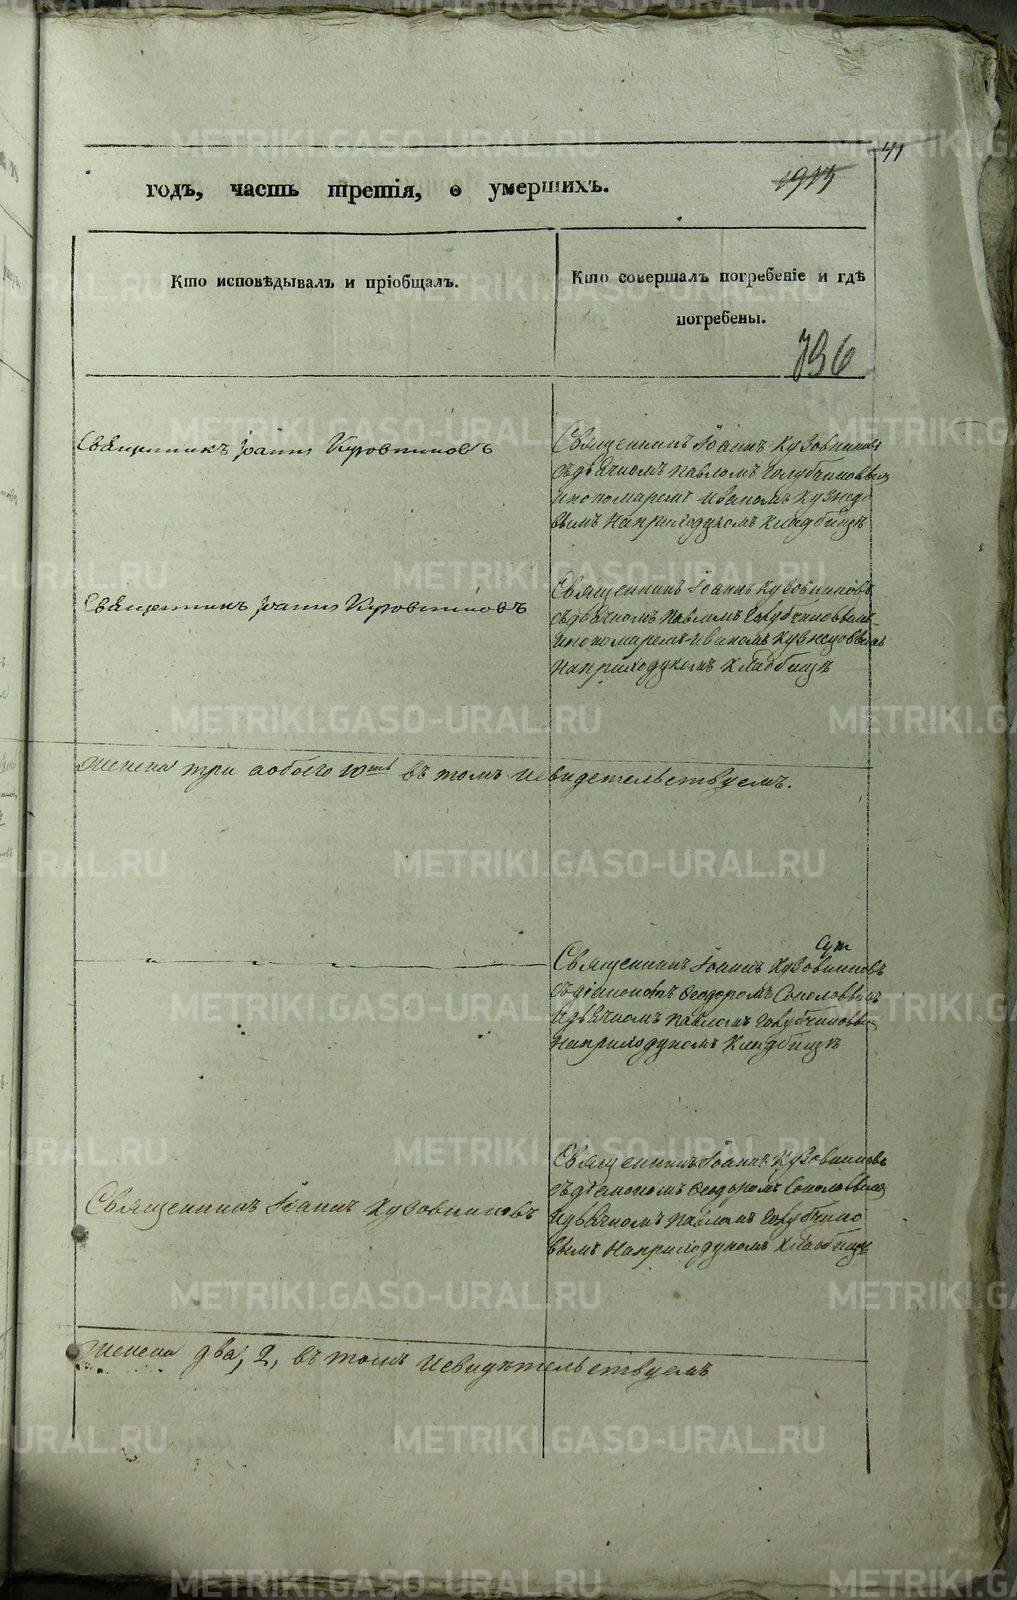 41
годъ, часть третія, о умершихъ.
1913
Кто исповѣдывалъ и пріобщалъ.
Кто совершалъ погребеніе и гдѣ
погребены.
796
Священникъ Іоаннъ Кузовниковъ
Священникъ Іоаннъ Кузовниковъ
съ дьячкомъ Павломъ Голубчиковым
и пономаремъ Иваномъ Кузнецо
вымъ На приходскомъ кладбищѣ
Священникъ Іоаннъ Кузовниковъ
Священникъ Іоаннъ Кузовниковъ
съ дьячкомъ Павломъ Голубчиковымъ
и пономаремъ Иваномъ Кузнецовымъ
На приходскомъ кладбищѣ
женска три обоего въ томъ и свидетельствуемъ.
Священникъ Іоаннъ Кузовниковъ
съ діакономъ Феодоромъ Соколовымъ
и дьячкомъ Павломъ Голубчиковым
На приходскомъ кладбищѣ
Священникъ Іоаннъ Кузовниковъ
Священникъ Іоаннъ Кузовниковъ
съ діакономъ Феодоромъ Соколовымъ
и дьячкомъ Павломъ Голубчико
вымъ На приходскомъ кладбищѣ
женска два, 2, въ томъ и свидѣтельствуемъ
METRIKI.GASO-URAL.RU